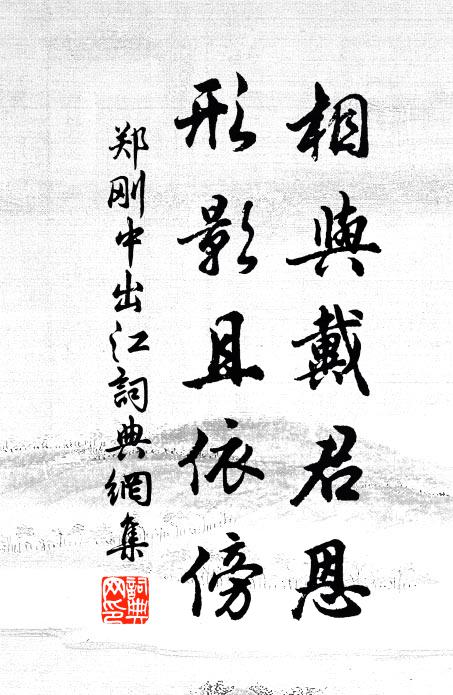 相與戴君恩
形影且依傍
郑刚中出江詞典網集
詞典网印